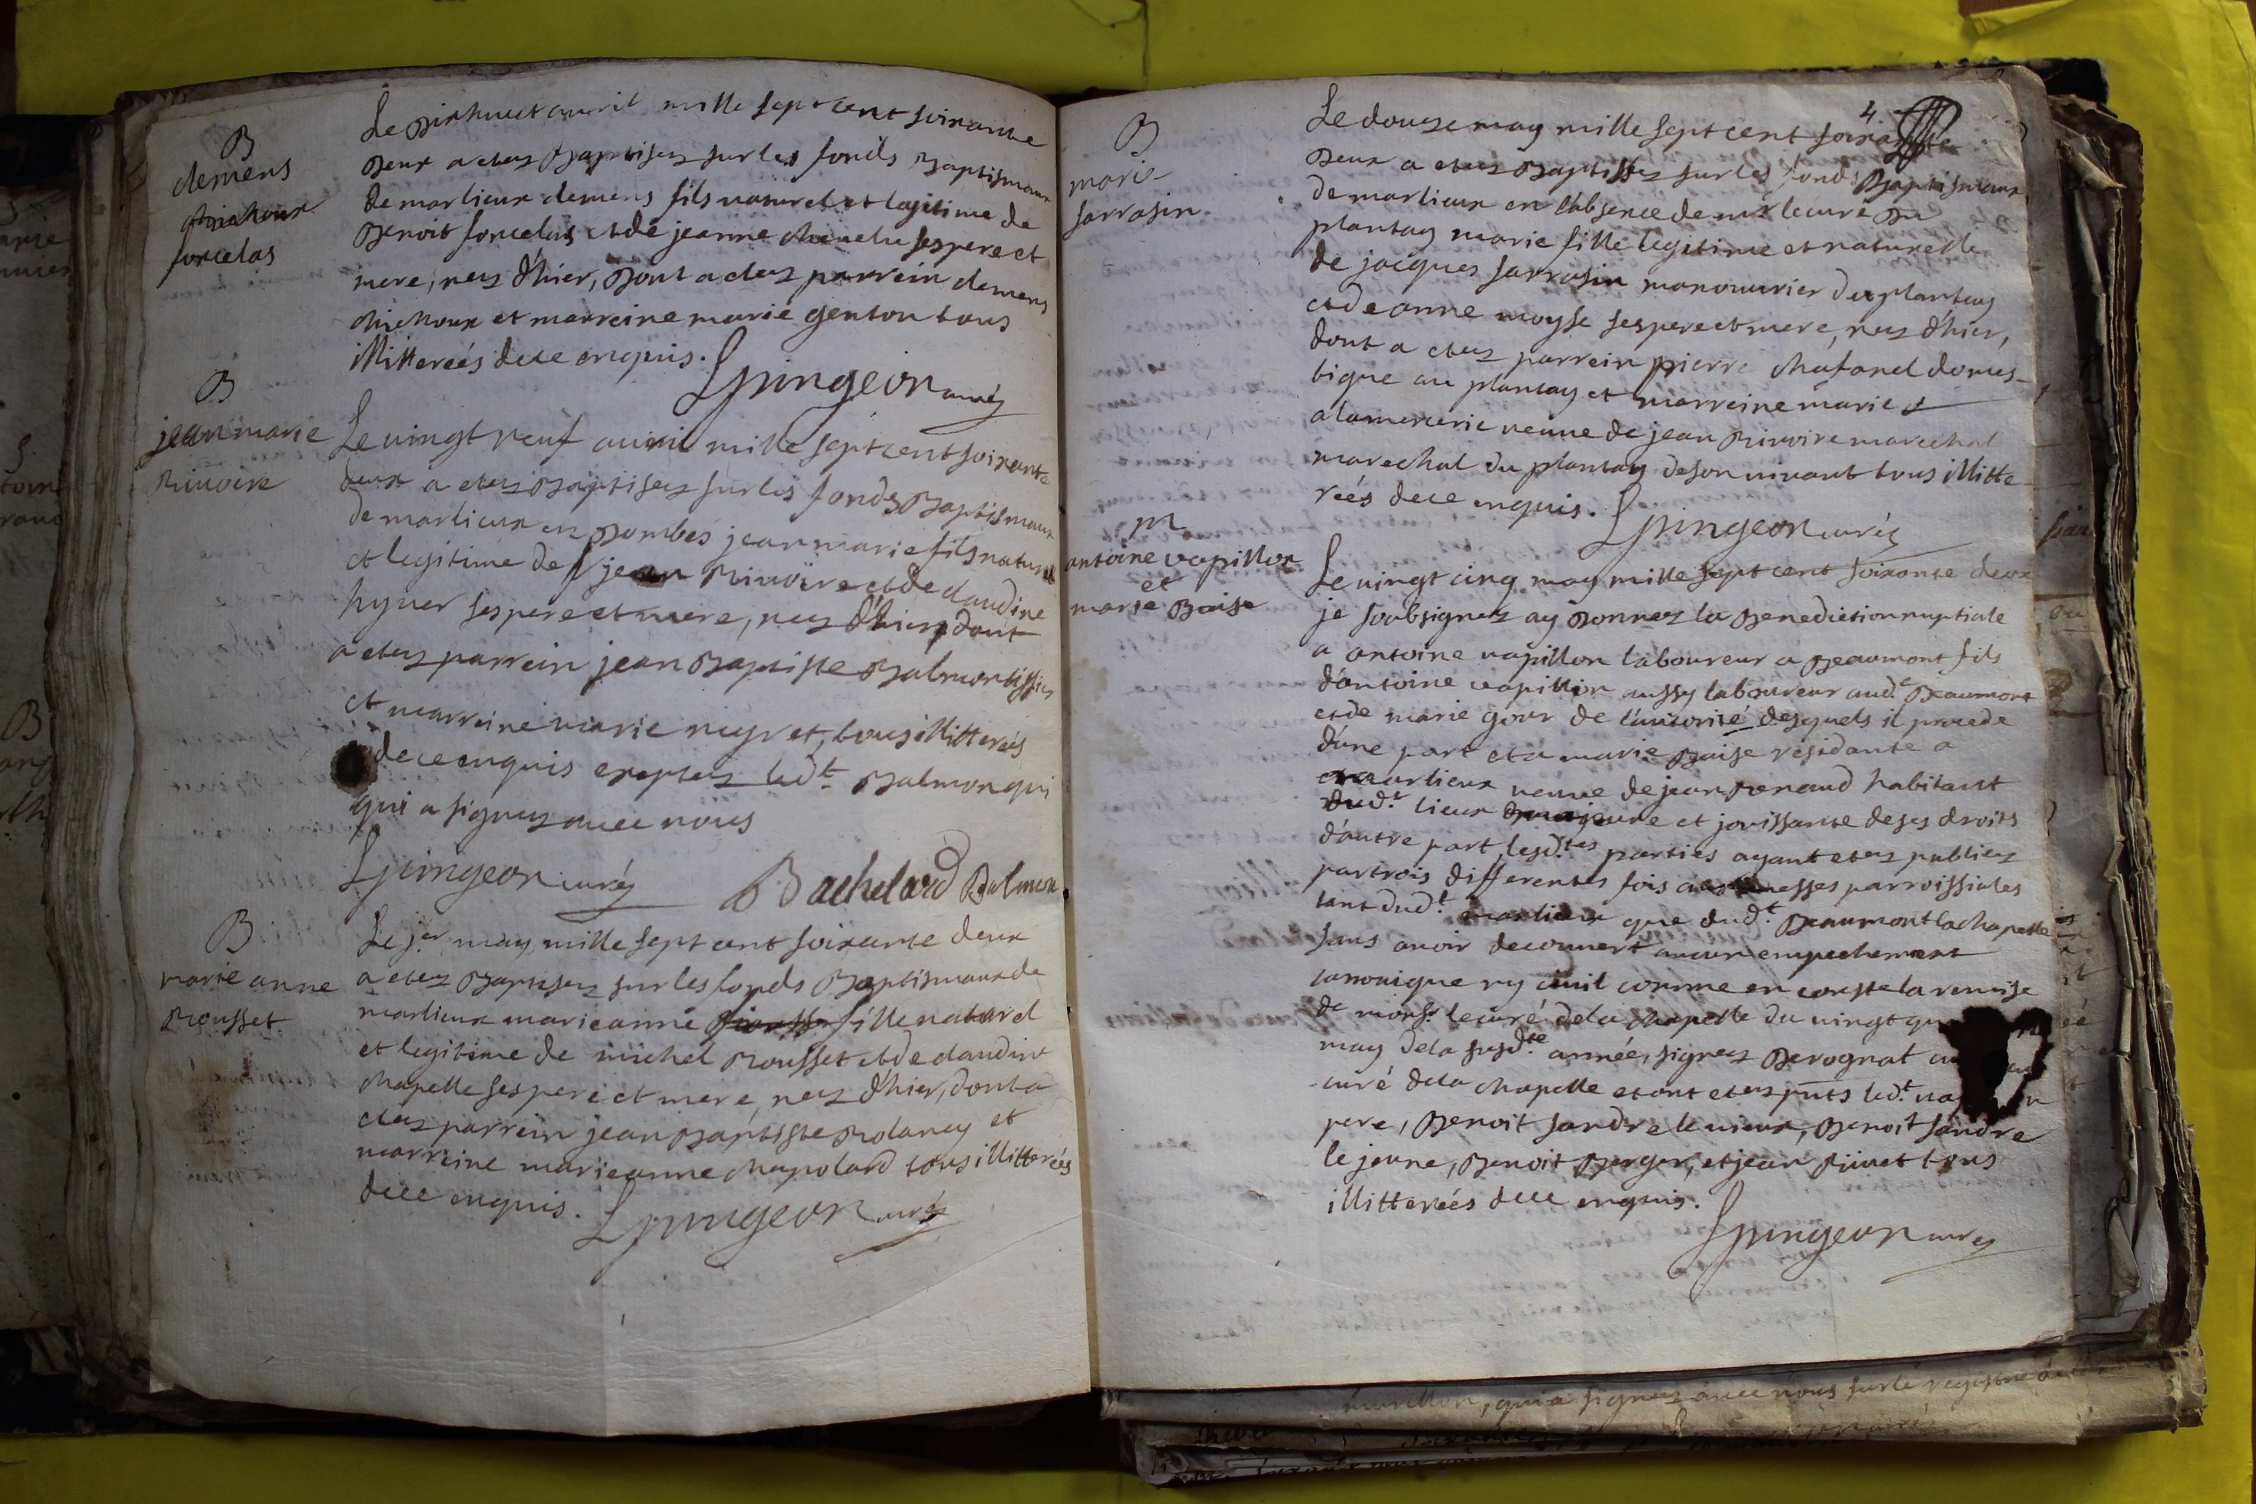 B
clemens
forcelas
Le dixhuit avril mille sept cent soixante
deux a etez Baptisez sur les fonds Baptismaux
de marlieux clemens fils naturel et legitime de
Benoit forcelas et de jeanne ses pere et
mere, nez d'hier, dont a etez parrein clemens
et marreine marie genton tous
illitterés de ce enquis.
Epingeon curéz
B
jean marie
Rivoire
Le vingt neuf avril mille sept cent soixante
deux a etez Baptisez sur les fonds Baptismaux
de marlieux en Dombes jean marie fils naturel
et legitime de jean Rivoire et de claudine
hyver ses pere et mere, nez d'hier, dont
a etez parrein jean Baptiste Balmon
et marreine marie neyret, tous illitterés
de ce enquis exeptez led.t Balmon qui
qui a signez avec nous
Epingeon curéz Bachelard Balmon
B
marie anne
Rousset
Le j.er may mille sept cent soixante deux
a etez Baptisez sur les fonds Baptismaux de
marlieux marieanne fille naturel
et legitime de michel Rousset et de claudine
chapelle ses pere et mere, nez d'hier, dont a
etez parrein jean Baptiste Rolancy et
marreine marieanne chapolard tous illitterés
de ce enquis. Epingeon curéz
4
B
marie
sarrasin
Le douze may mille sept cent soixante
deux a etez Baptisez sur les fonds Baptismaux
de marlieux en l'absence de mr le curé du
plantay marie fille legitime et naturelle
de jacques sarrasin manouvrier du plantay
et de anne moyse ses pere et mere, nez d'hier,
dont a etez parrein pierre chafanel domes-
tique au plantay et marreine marie
alamercerie veuve de jean Rivoire marechal
marechal du plantay de son vivant tous illitte
reés de ce enquis.
Epingeon curéz
m
antoine vapillon
et
marie Baise
Le vingt cinq may mille sept cent soixante deux
je soubsignez ay Donnez la Benediction nuptiale
a antoine vapillon laboureur a Beaumont fils
d'antoine vapillon aussy laboureur aud.t Beaumont
et de marie gour de l'autorité desquels il procede
d'une part et a marie Baise residante a
marlieux veuve de jean Renaud habitant
dud.t lieux majeure et jouissante de ses droits
d'autre part, lesd.tes parties ayant etez publiez
par trois differentes fois aux messes parroissiales
tant dud.t marlieux que dud.t Beaumont la chapelle
sans avoir decouvert aucun empechement
canonique ny civil comme en conste la remise
de monsr. le curé de la chapelle du vingt
may de la susd.te année, signez Derognat
curé de la chapelle et ont etez pnts led.t
pere, Benoit sandre le vieux, Benoit sandre
le jeune, Benoit Berger, et jean Rivet tous
illitterés de ce enquis.
Epingeon curéz